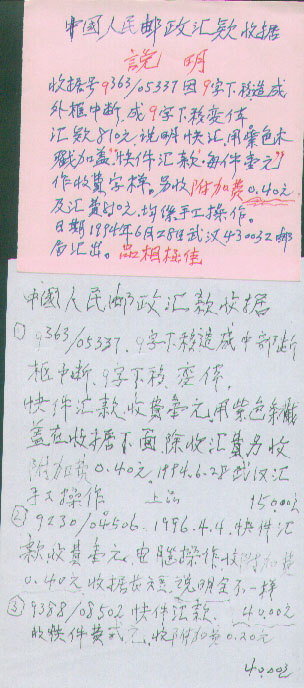 中國人民邮政汇款收据
說明
收据号9363/05337因9字下移造成
外框中断,成9字下移变体
汇款810元,说明快汇,用紫色木
戳加盖"快件汇款·每件壹元"
作收費字样。另收附加費0.40元
及汇費8.10元,均係手工操作。
日期1994年6月28日武汉430032邮
局汇出。品相极佳
中國人民邮政汇款收据
① 9363/05337.9字下移造成中部断
框中断,9字下移,变体,
快件汇款收費壹元,用紫色条戳
盖在收据下面,除收汇費另收
附加費0.40元.1994.6.28武汉汇
手工操作 上品 150.00元
② 9230/04506.1996.4.4.快件汇
款收費壹元,电腦操作,收附加費
0.40元.收据长方,說明
不一样
③ 9388/08502快件汇款. 40.00元
收快件費贰元,收附加費0.20元
40.00元